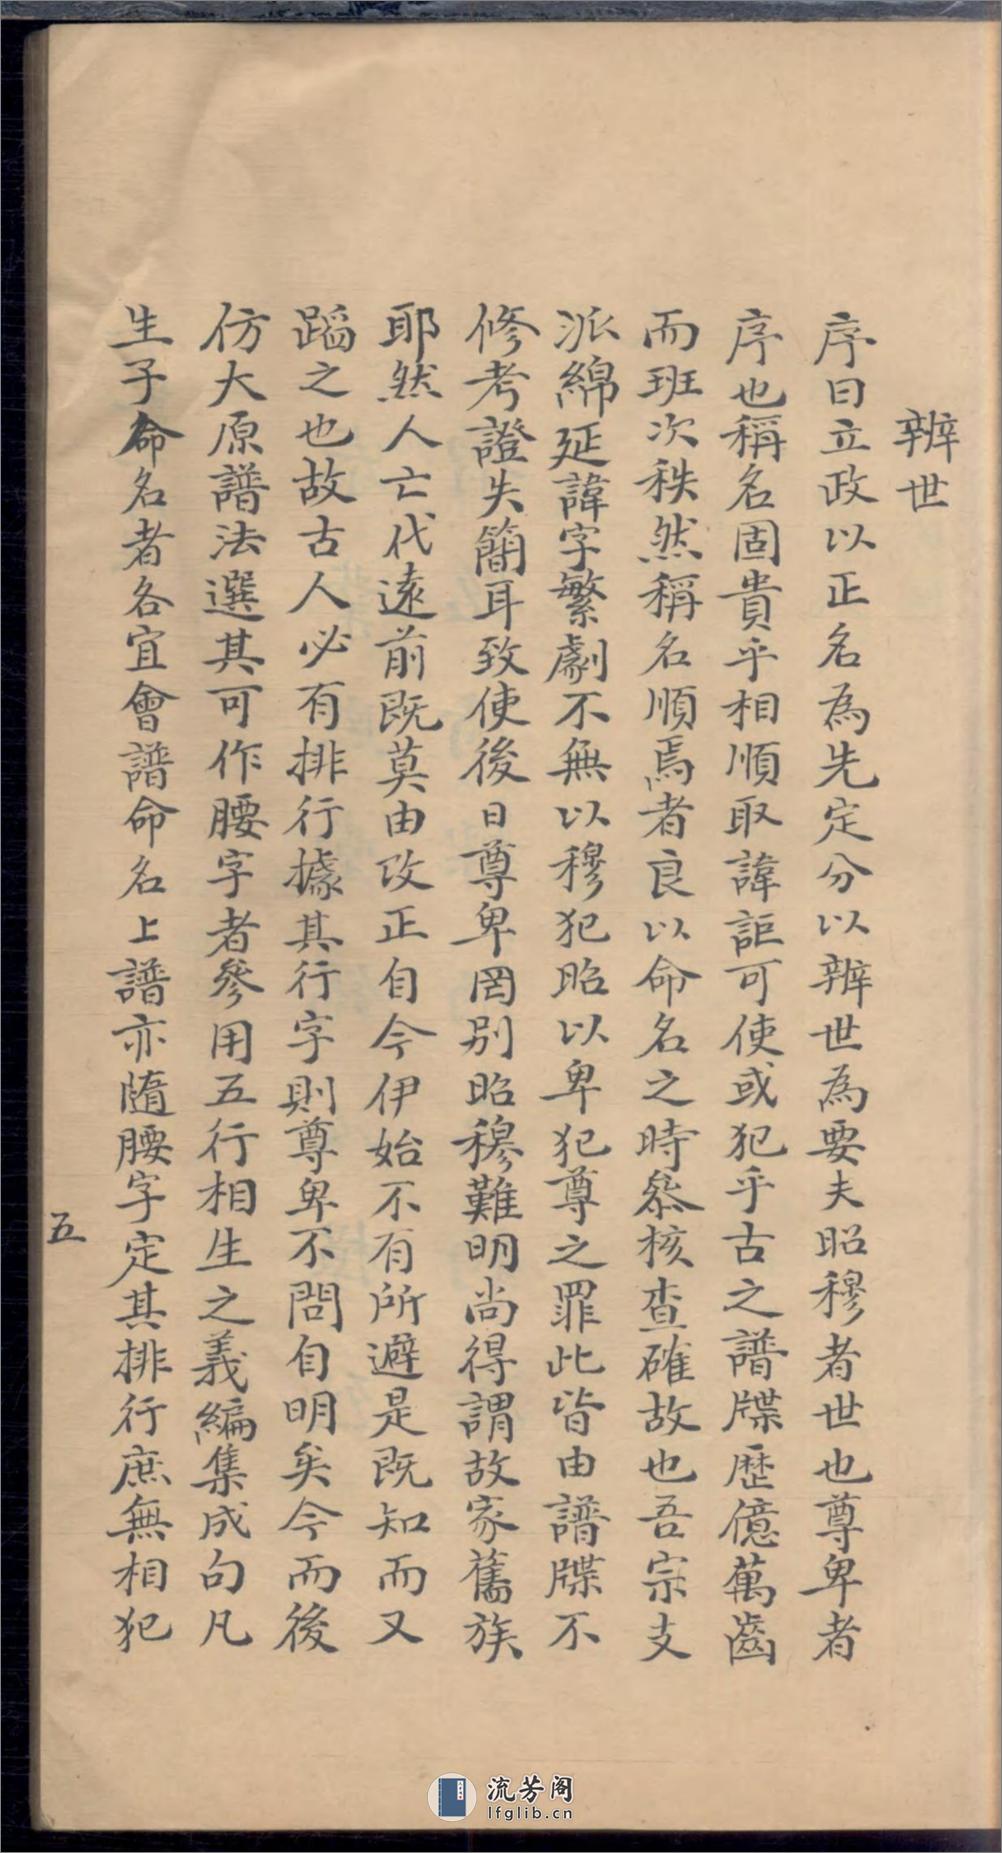 辨世
序曰立政以正名為先定分以辨世為要夫昭穆者世也尊卑者
序也稱名固貴乎相順取諱詎可使或犯乎古之譜牒歷億萬齒
而班次秩然稱名順焉者良以命名之時叅核查確故也吾宗支
派綿延諱字繁劇不無以穆犯昭以卑犯尊之罪此皆由譜牒不
修考證失簡耳致使後日尊卑罔別昭穆難明尚得謂故家舊族
耶然人亡代遠前既莫由改正自今伊始不有所避是既知而又
蹈之也故古人必有排行據其行字則尊卑不問自明矣今而後
仿大原譜法選其可作腰字者參用五行相生之義編集成句凡
生子命名者各宜會譜命名上譜亦隨腰字定其排行庶無相犯
五
流芳阁
lfglib.cn